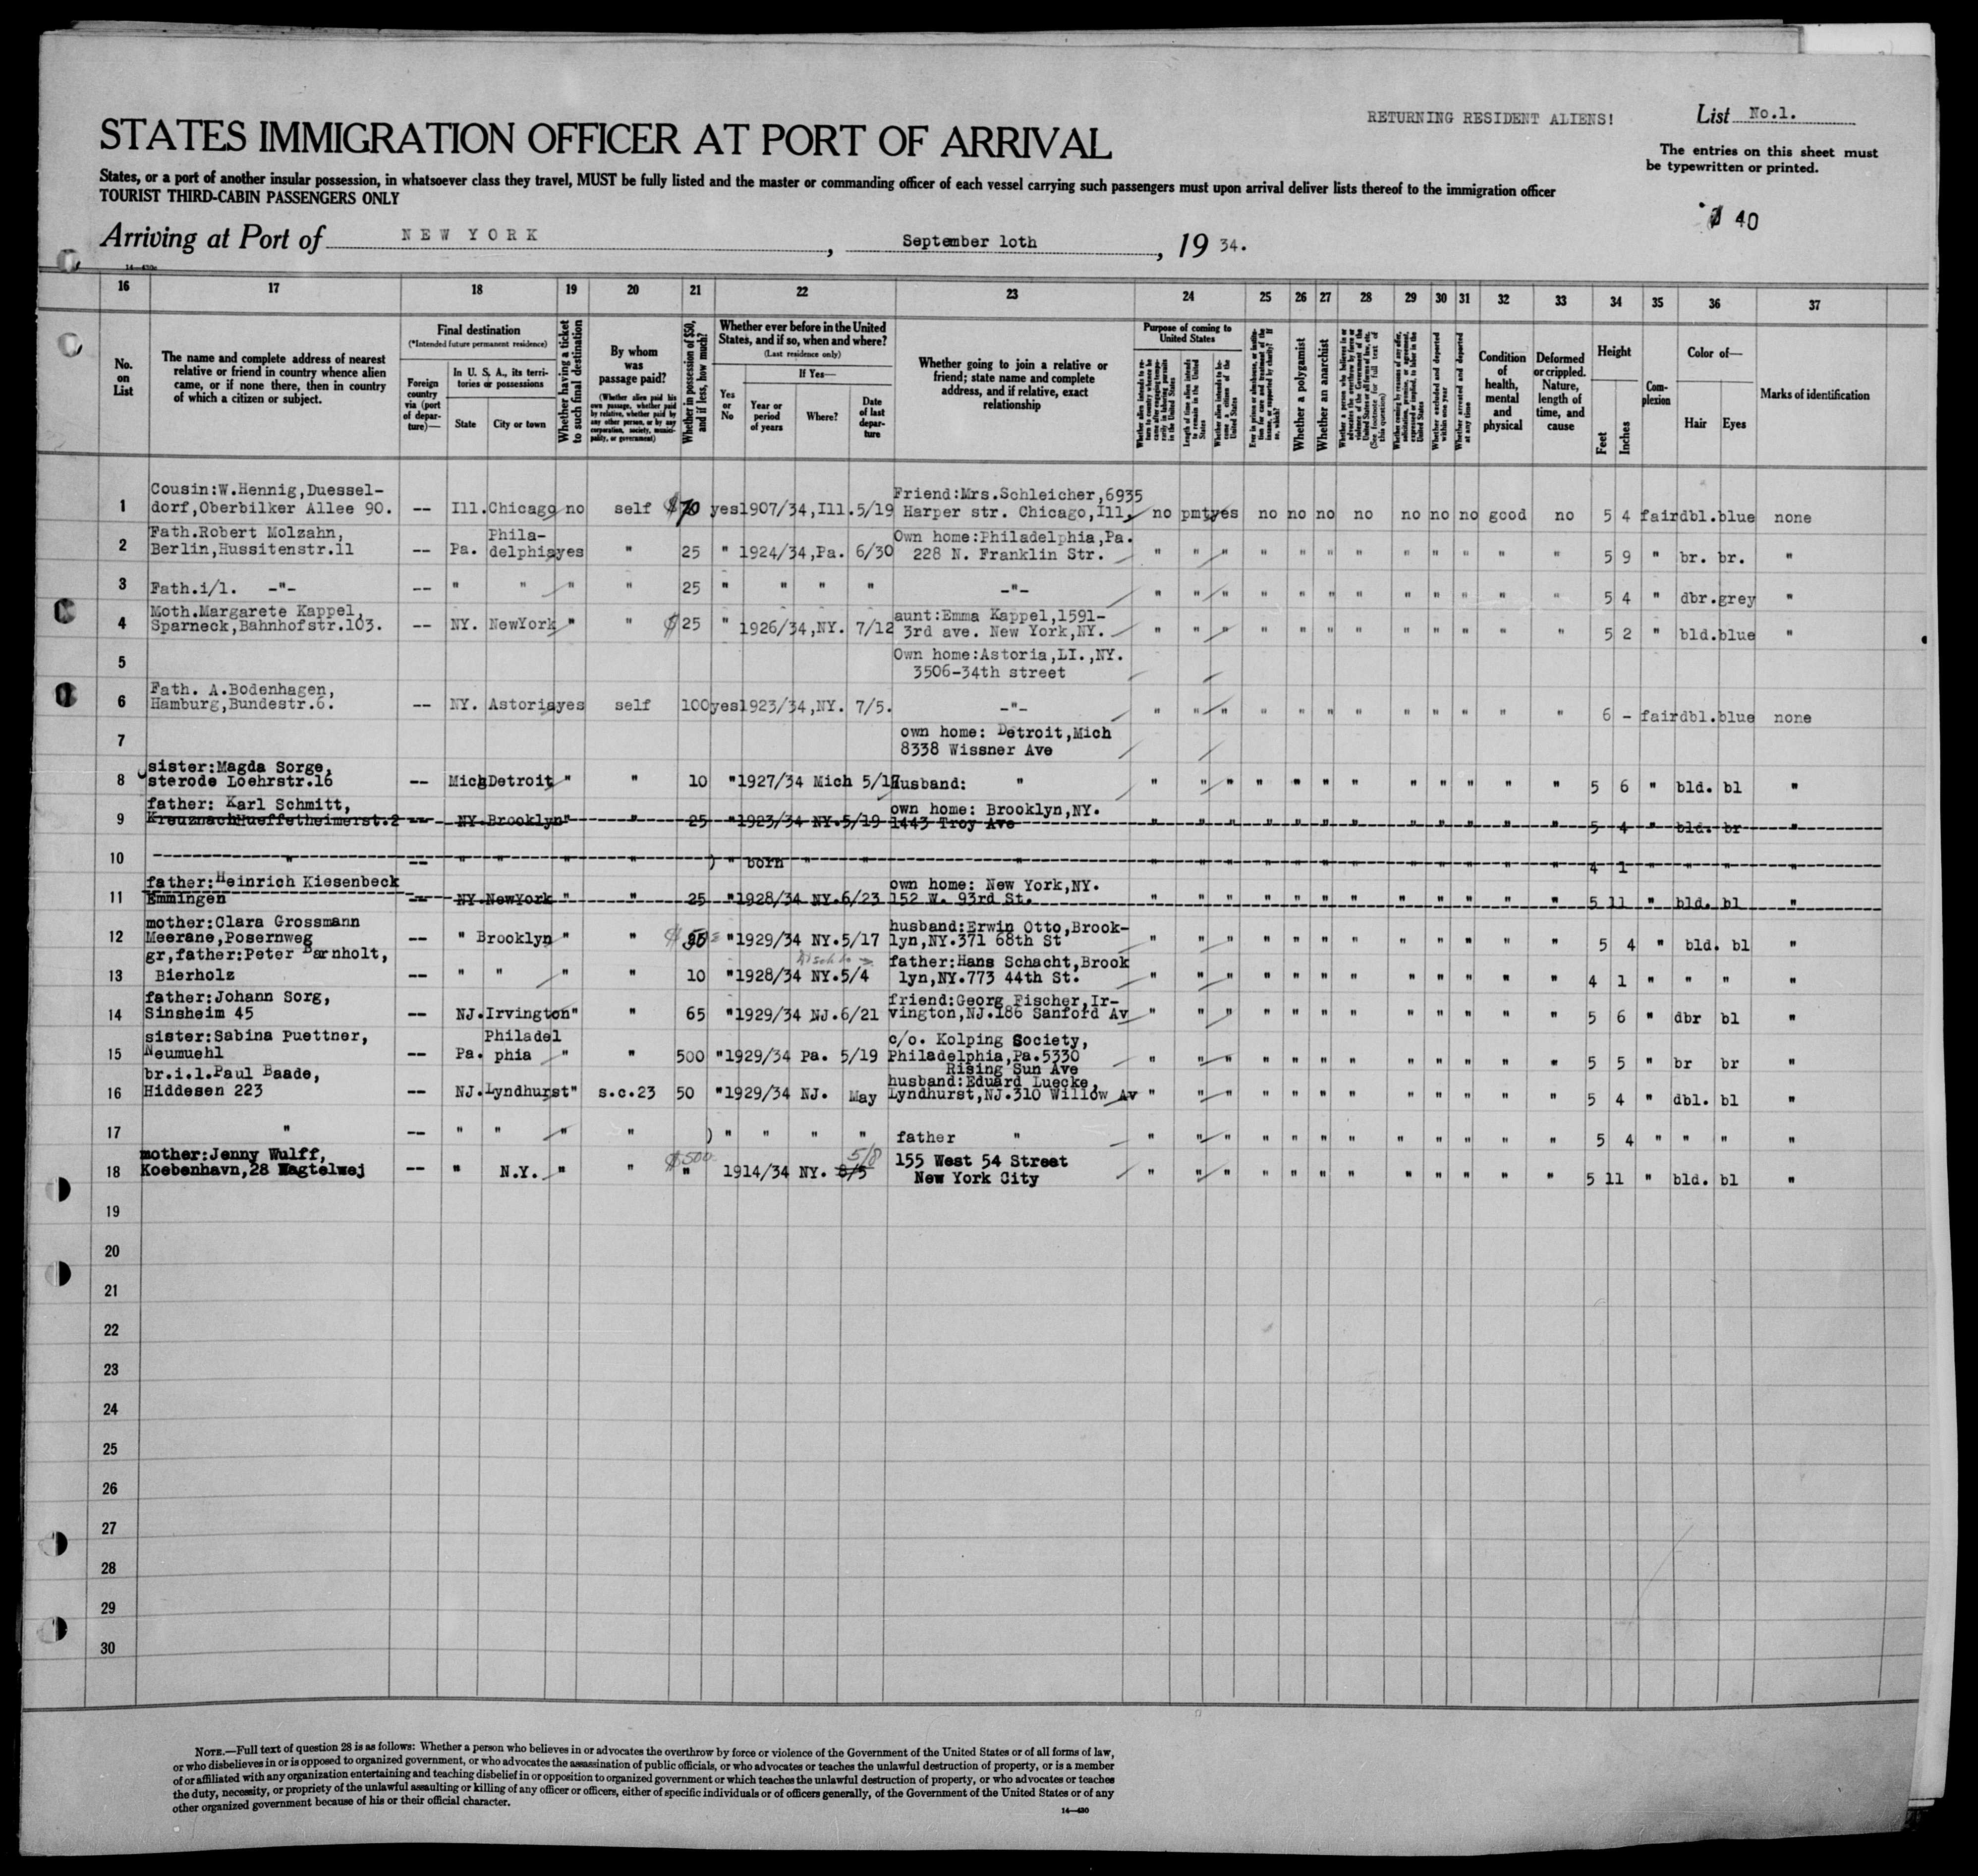 RETURNING RESIDENT ALIENS!
List No.1.
STATES IMMIGRATION OFFICER AT PORT OF ARRIVAL
The entries on this sheet must
be typewritten or printed.
States, or a port of another insular possession, in whatsoever class they travel, MUST be fully listed and the master or commanding officer of each vessel carrying such passengers must upon arrival deliver lists thereof to the immigration officer
TOURIST THIRD-CABIN PASSENGERS ONLY
40
Arriving at Port of NEW YORK, September 10th, 19 34.
16 17 18 19 20 21 22 23 24 25 26 27 28 29 30 31 32 33 34 35 36 37
No. on List
The name and complete address of nearest
relative or friend in country whence alien
came, or if none there, then in country
of which a citizen or subject.
Final destination
(*Intended future permanent residence)
Foreign country via (port of departure)—
In U. S. A., its territories or possessions
State
City or town
Whether having a ticket to such final destination
By whom was passage paid?
(Whether alien paid his own passage, whether paid by relative, whether paid by any other person, or by any corporation, society, municipality, or government)
Whether in possession of $50, and if less, how much?
Whether ever before in the United
States, and if so, when and where?
(Last residence only)
Yes or No
If Yes—
Year or period of years
Where?
Date of last departure
Whether going to join a relative or
friend; state name and complete
address, and if relative, exact
relationship
Purpose of coming to United States
Length of time alien intends to remain in the United States
Whether alien intends to become a citizen of the United States
Whether a polygamist
Whether an anarchist
Whether excluded and deported within one year
Whether arrested and deported at any time
Condition of health, mental and physical
Deformed or crippled. Nature, length of time, and cause
Height
Feet
Inches
Complexion
Color of—
Hair
Eyes
Marks of identification
Cousin:W.Hennig,Duessel- Friend:Mrs.Schleicher,6935
1 dorf,Oberbilker Allee 90. -- Ill. Chicago no self $70 yes 1907/34,Ill. 5/19 Harper str. Chicago,Ill. no pmt yes no no no no no no no good no 5 4 fair dbl. blue none
Fath.Robert Molzahn, Phila- Own home:Philadelphia,Pa.
2 Berlin,Hussitenstr.11 -- Pa. delphia yes " 25 " 1924/34,Pa. 6/30 228 N. Franklin Str. " " " " " " " " " " " " 5 9 " br. br. "
3 Fath.i/l. -"- -- " " " " 25 " " " " -"- " " " " " " " " " " " " 5 4 " dbr. grey "
Moth.Margarete Kappel, aunt:Emma Kappel,1591-
4 Sparneck,Bahnhofstr.103. -- NY. NewYork " " $25 " 1926/34,NY. 7/12 3rd ave. New York,NY. " " " " " " " " " " " " 5 2 " bld. blue "
Own home:Astoria,LI.,NY.
5 3506-34th street
Fath. A.Bodenhagen,
6 Hamburg,Bundestr.6. -- NY. Astoria yes self 100 yes 1923/34,NY. 7/5. -"- " " " " " " " " " " " " 6 - fair dbl. blue none
own home: Detroit,Mich
7 8338 Wissner Ave
sister:Magda Sorge,
8 sterode Loehrstr.16 -- Mich Detroit " " 10 " 1927/34 Mich 5/17 Husband: " " " " " " " " " " " " " 5 6 " bld. bl "
father: Karl Schmitt, own home: Brooklyn,NY.
9 KreuznachHueffetheimerst.2 -- NY. Brooklyn " " 25 " 1923/34 NY. 5/19 1443 Troy Ave " " " " " " " " " " " " 5 4 " bld. br "
10 " -- " " " " ) " born " " " " " " " " " " " " " " " 4 1 " " " "
father:Heinrich Kiesenbeck own home: New York,NY.
11 Emmingen -- NY. NewYork " " 25 " 1928/34 NY. 6/23 152 W. 93rd St. " " " " " " " " " " " " 5 11 " bld. bl "
mother:Clara Grossmann husband:Erwin Otto,Brook-
12 Meerane,Posernweg -- " Brooklyn " " " 1929/34 NY. 5/17 lyn,NY.371 68th St " " " " " " " " " " " " 5 4 " bld. bl "
gr,father:Peter Barnholt, father:Hans Schacht,Brook
13 Bierholz -- " " " " 10 " 1928/34 NY. 5/4 lyn,NY.773 44th St. " " " " " " " " " " " " 4 1 " " " "
father:Johann Sorg, friend:Georg Fischer,Ir-
14 Sinsheim 45 -- NJ. Irvington " " 65 " 1929/34 NJ. 6/21 vington,NJ.186 Sanford Av " " " " " " " " " " " " 5 6 " dbr bl "
sister:Sabina Puettner, Philadel c/o. Kolping Society,
15 Neumuehl -- Pa. phia " " 500 " 1929/34 Pa. 5/19 Philadelphia,Pa.5330 " " " " " " " " " " " " 5 5 " br br "
Rising Sun Ave
br.i.l.Paul Baade, husband:Eduard Luecke,
16 Hiddesen 223 -- NJ. Lyndhurst " s.c.23 50 " 1929/34 NJ. May Lyndhurst,NJ.310 Willow Av " " " " " " " " " " " " 5 4 " dbl. bl "
17 " -- " " " " ) " " " " father " " " " " " " " " " " " " 5 4 " " " "
mother:Jenny Wulff, $500 5/8 155 West 54 Street
18 Koebenhavn,28 Wagtelwej -- " N.Y. " " " 1914/34 NY. 8/5 New York City " " " " " " " " " " " 5 11 " bld. bl "
19
20
21
22
23
24
25
26
27
28
29
30
NOTE.—Full text of question 28 is as follows: Whether a person who believes in or advocates the overthrow by force or violence of the Government of the United States or of all forms of law,
or who disbelieves in or is opposed to organized government, or who advocates the assassination of public officials, or who advocates or teaches the unlawful destruction of property, or is a member
of or affiliated with any organization entertaining and teaching disbelief in or opposition to organized government or which teaches the unlawful destruction of property, or who advocates or teaches
the duty, necessity, or propriety of the unlawful assaulting or killing of any officer or officers, either of specific individuals or of officers generally, of the Government of the United States or of any
other organized government because of his or their official character.
14—430